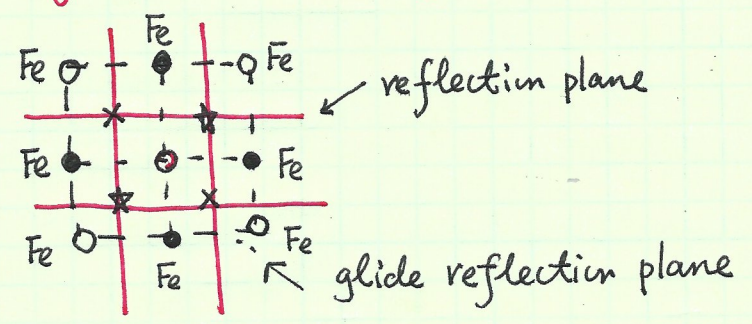 Fe
Fe Fe
reflection plane
Fe Fe
Fe Fe
Fe
glide reflection plane